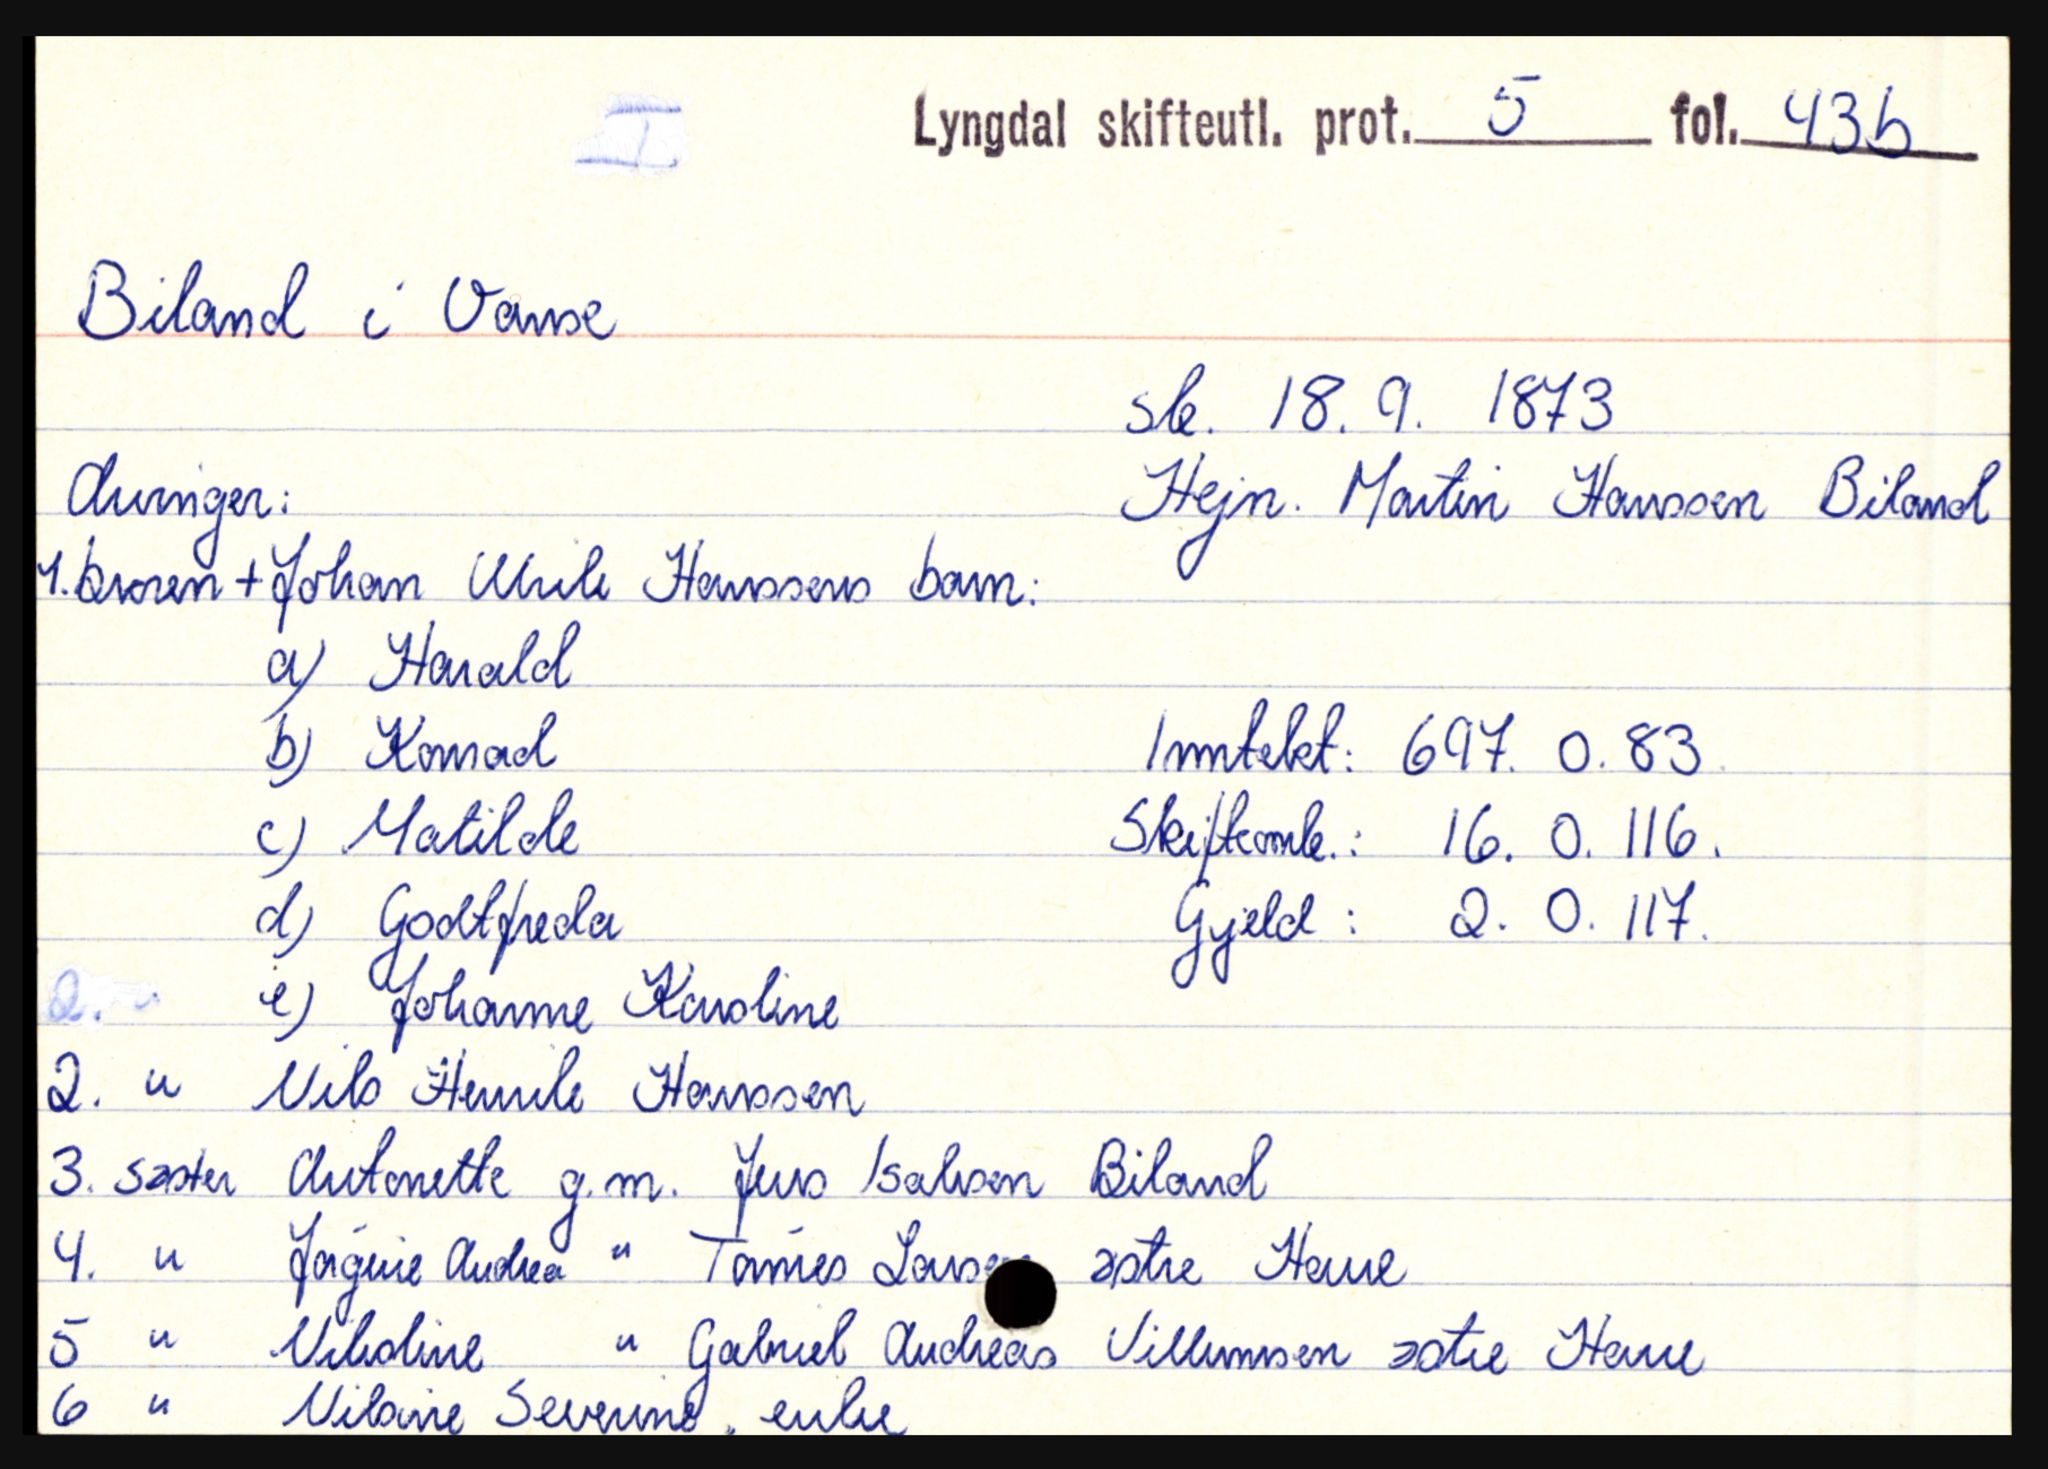 I
Lyngdal skifteutl. prot. 5 fol. 43b
Biland i Vanse
sk. 18. 9. 1873
Arvinger:
Hejn. Martin Hanssen Biland
1. broren + Johan Ulrik Hanssens barn:
a) Harald
b) Konrad
Inntekt: 697. 0. 83.
c) Matilde
Skifteomk.: 16. 0. 116.
d) Godtfreda
Gjeld: 2. 0. 117.
2. " e) Johanne Karoline
2. " Nils Henrik Hanssen
3. søster Antonette g.m. Jens Isaksen Biland
4. " Jørgine Andrea " Tønnes Larsen østre Haue
5 " Nikoline " Gabriel Andreas Villumsen østre Haue
6 " Nilsine Severine, enke